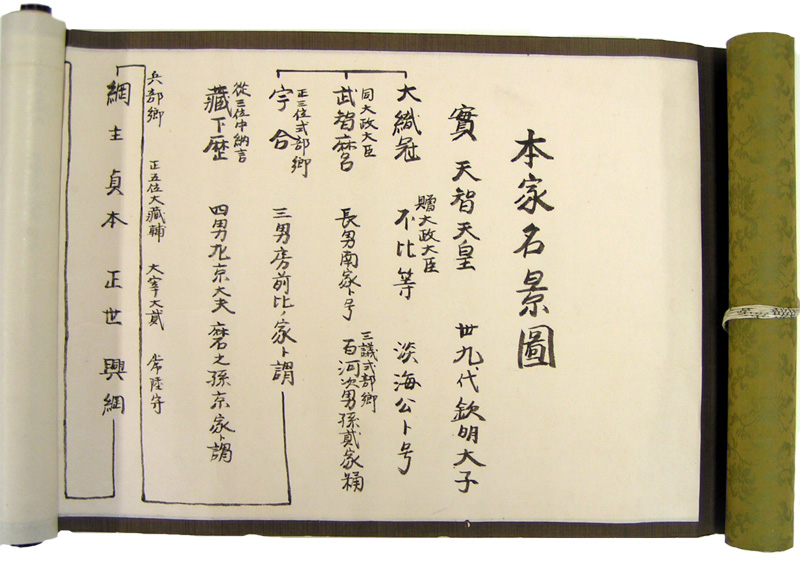 本家名景圖
實 天智天皇 卅九代欽明大子
大織冠 不比等 淡海公ト号
贈大政大臣
同大政大臣
武智麻呂 長男南家ト号 百河次男孫貳家桶
三議式部郷
正三位式部郷
宇合 三男房前比ノ家ト謂
從三位中納言
藏下歴 四男九京大夫麻呂之孫京家ト謂
兵部郷 正五位大藏輔 大宰大貳 常陸守
綱主 貞本 正世 興綱